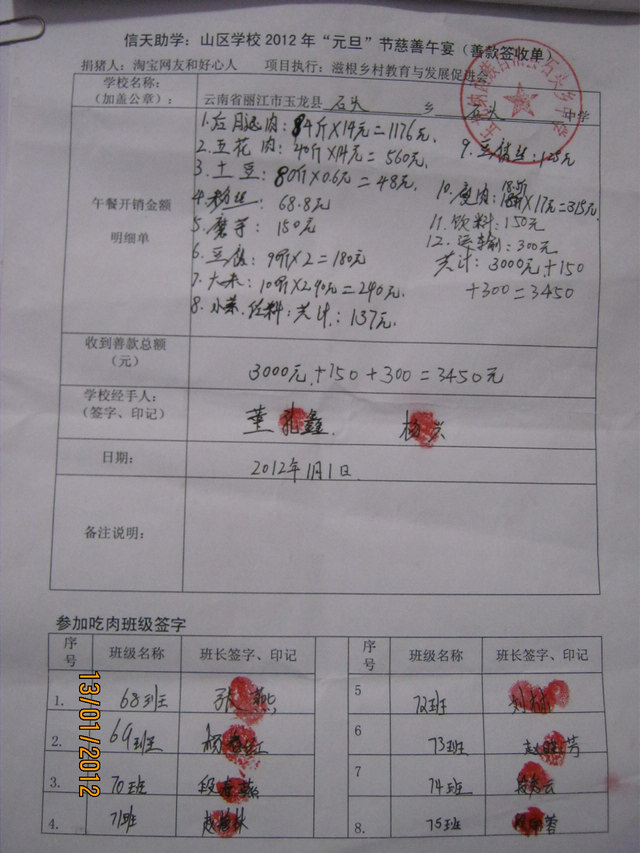 信天助学：山区学校2012年“元旦”节慈善午宴（善款签收单）
捐猪人：淘宝网友和好心人 项目执行：滋根乡村教育与发展促进会
学校名称：
（加盖公章）：
云南省丽江市玉龙县 石头 乡 石头 中学
午餐开销金额
明细单
1.后腿肉：84斤×14元=1176元.
2.五花肉：40斤×14元=560元.
3.土豆：80斤×0.6元=48元.
4.粉丝：68.8元
5.魔芋：150元
6.豆腐：90斤×2=180元
7.大米：100斤×2.40元=240元.
8.小菜.佐料：共计：137元.
9.豆腐丝：125元
10.瘦肉：18.5斤×17元=315元.
11.饮料：150元
12.运输：300元
共计：3000元+150
+300=3450
收到善款总额
（元）
3000元+150+300=3450元
学校经手人：
（签字、印记）
日期：
2012年1月1日.
备注说明：
参加吃肉班级签字
序号 班级名称 班长签字、印记 序号 班级名称 班长签字、印记
1. 68班 5 72班
2. 69班 6 73班
3. 70班 7 74班
4. 71班 8. 75班
13/01/2012